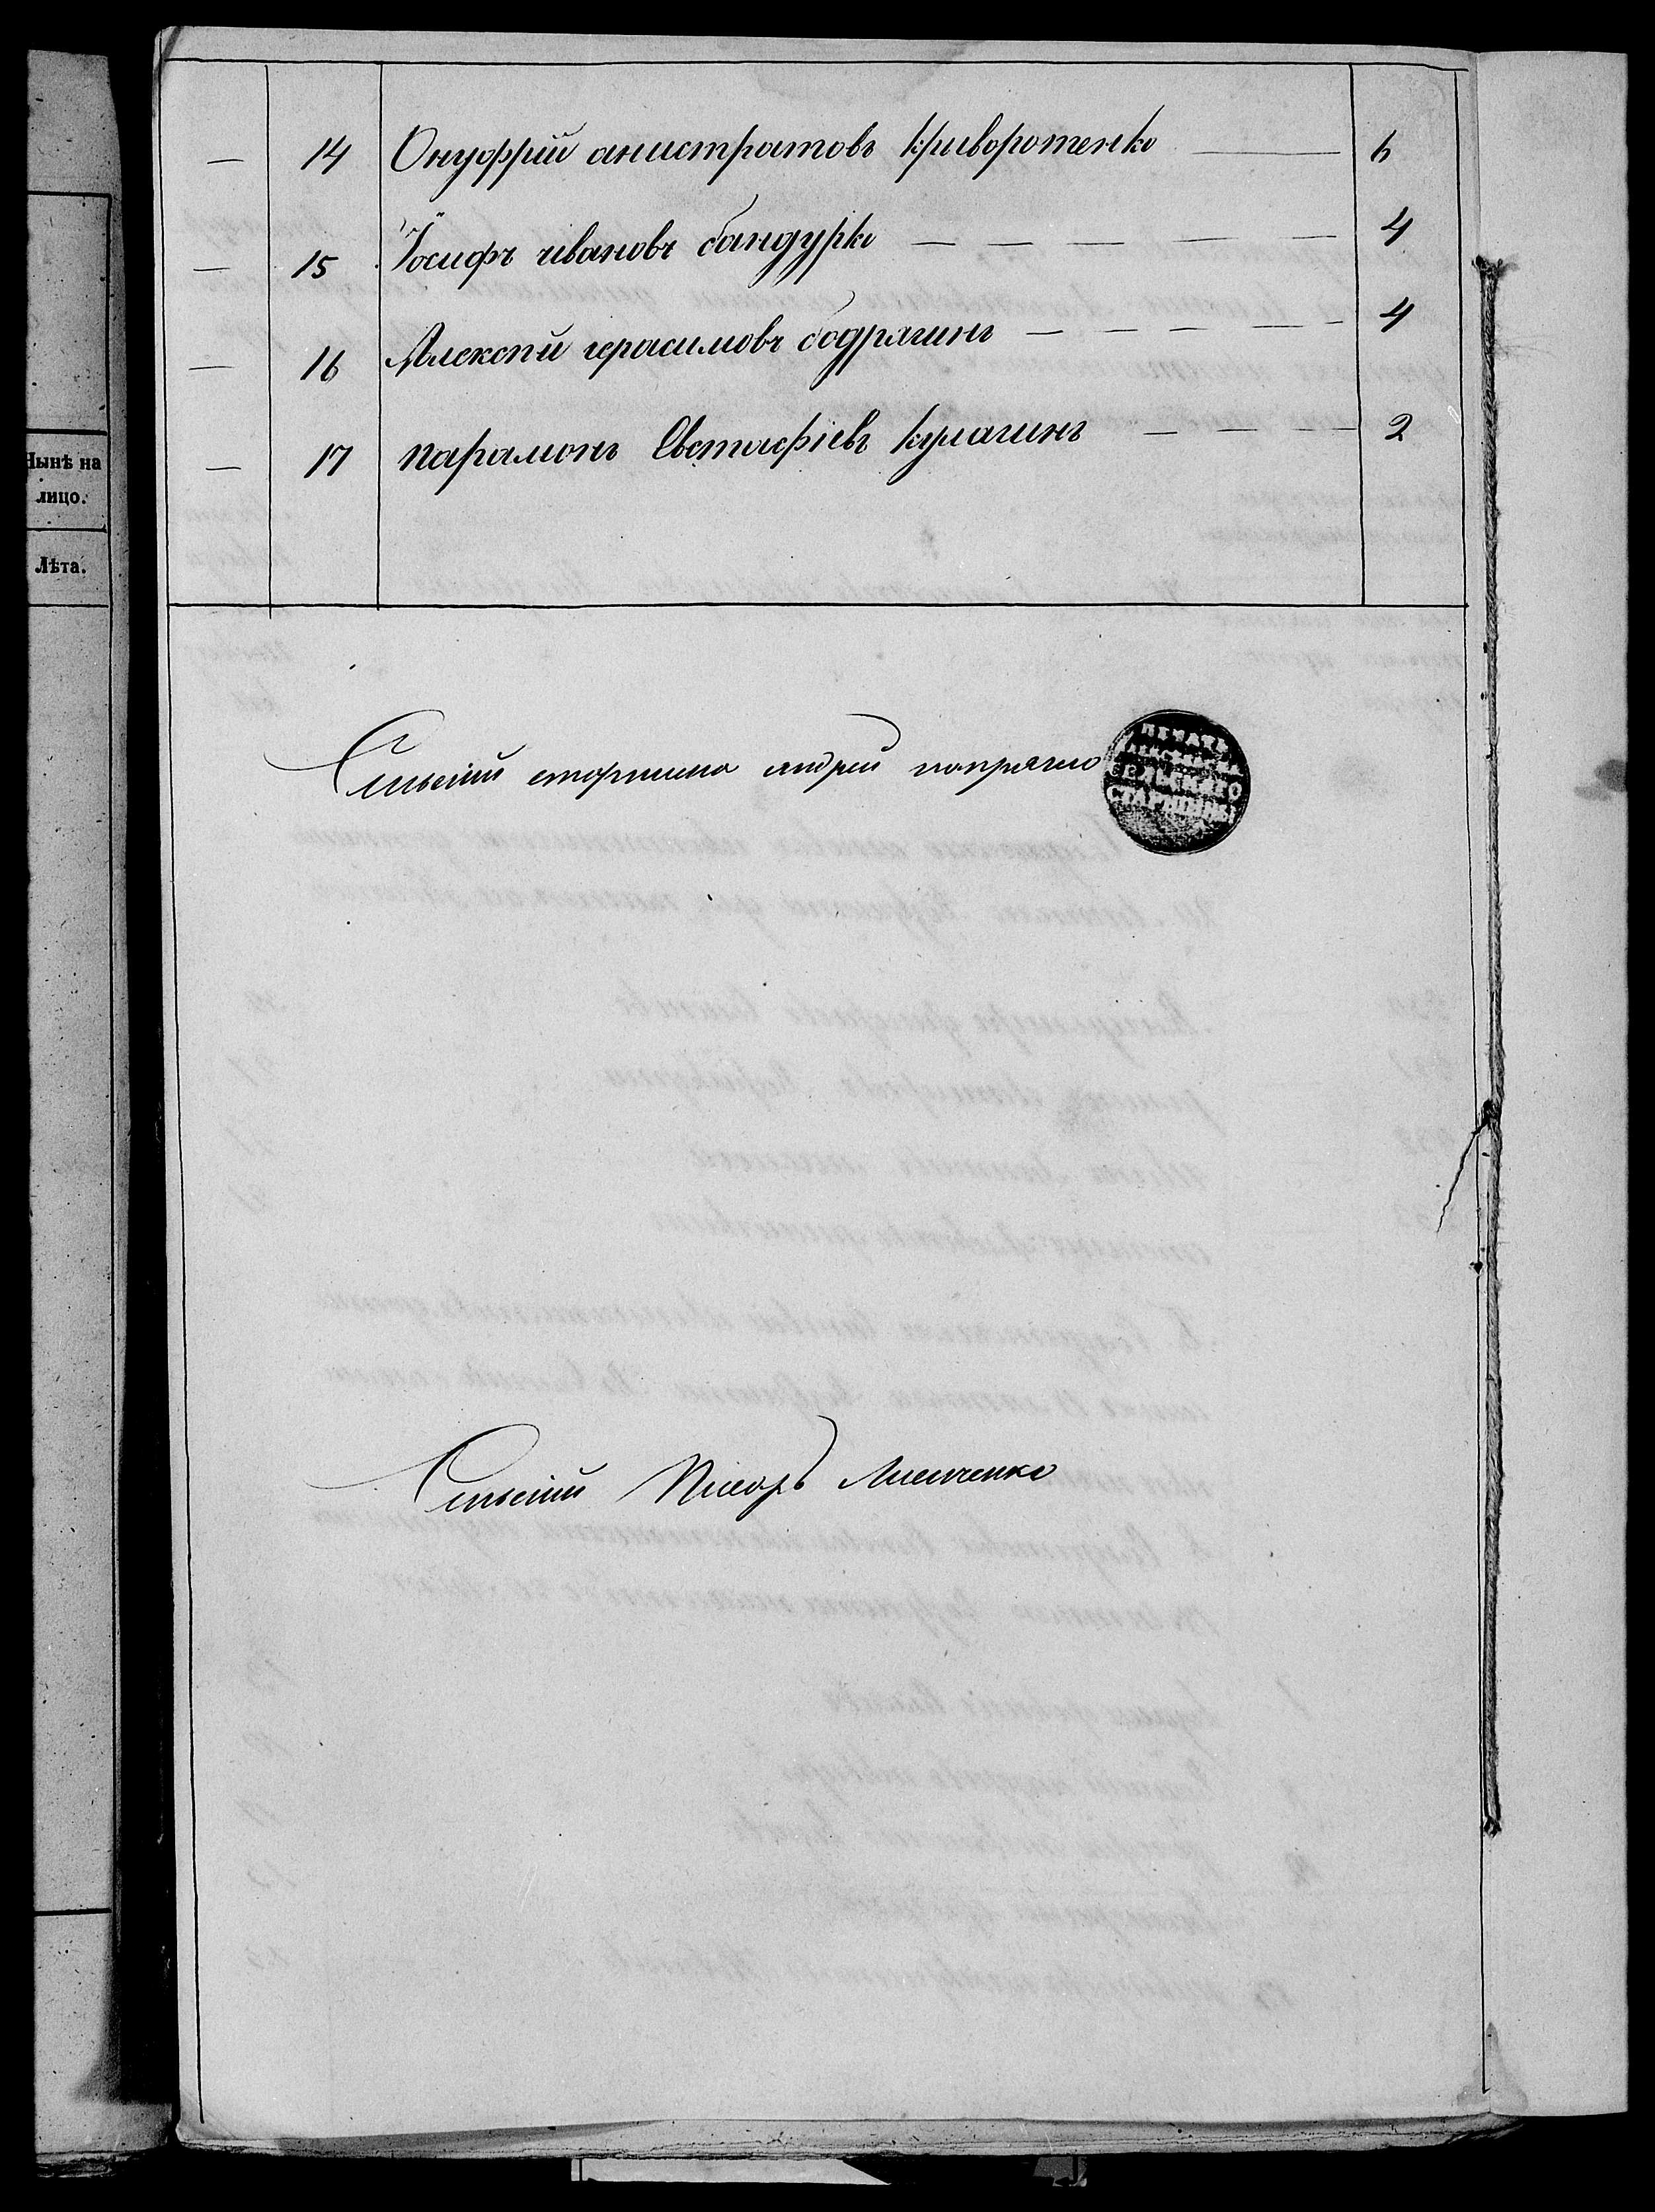 Нынѣ на
лицо.
Лѣта.
— 14 Онуфрій анистратовъ Криворотенко — 6
— 15 Іосифъ ивановъ бандурко — — — — — 4
— 16 Алексѣй герасимовъ бодрягинъ — — — — — 4
— 17 парамонъ Евстафіевъ кулагинъ — — — — 2
Сельскій старшина андрей
ПЕЧАТЬ
СЕЛЬСКАГО
СТАРШИНЫ
Сельскій Писарь